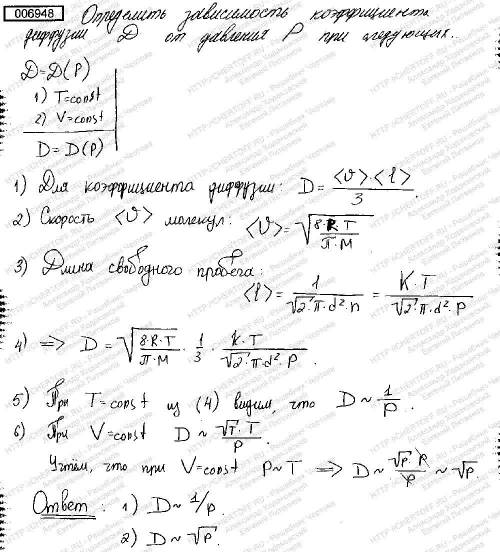 006948 Определить зависимость коэффициента
диффузии D от давления P при следующих..
D=D(P)
1) T=const
2) V=const
D = D(P)
1) Для коэффициента диффузии: D = <υ>·<l> / 3.
2) Скорость <υ> молекул: <υ> = √(8·R·T / π·M)
3) Длина свободного пробега:
<l> = 1 / (√2·π·d²·n) = K·T / (√2·π·d²·P)
4) => D = √(8·R·T / π·M) · 1/3 · K·T / (√2·π·d²·P).
5) При T=const из (4) видим, что D ~ 1/P.
6) При V=const D ~ √T·T / P
Учтём, что при V=const P~T => D ~ √P·P / P ~ √P.
Ответ: 1) D ~ 1/P.
2) D ~ √P.